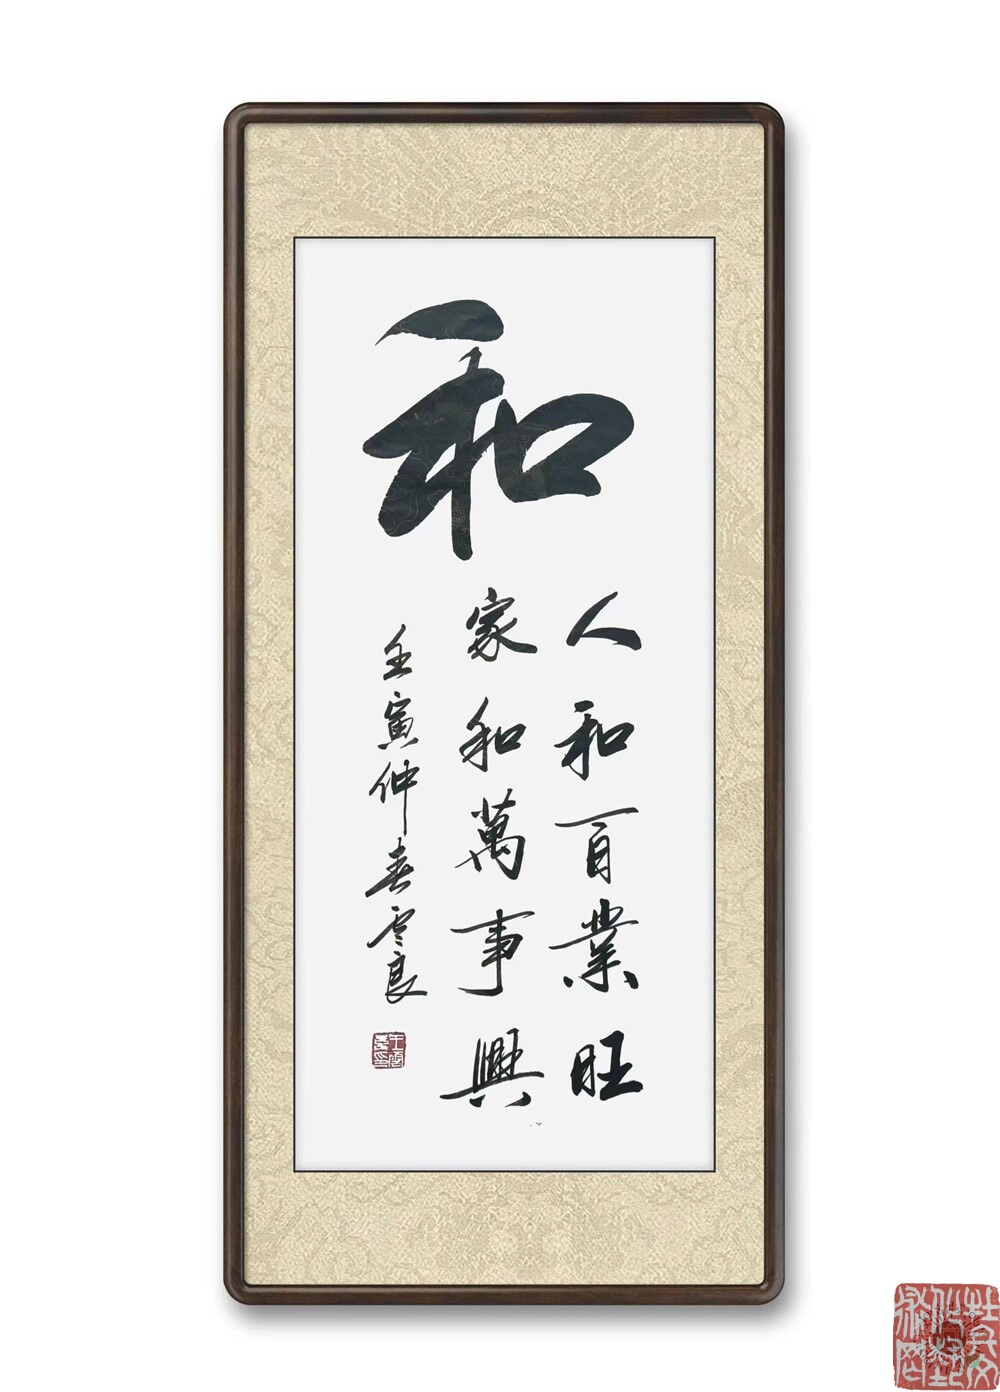 和
人和百業旺
家和萬事興
壬寅仲春雲良